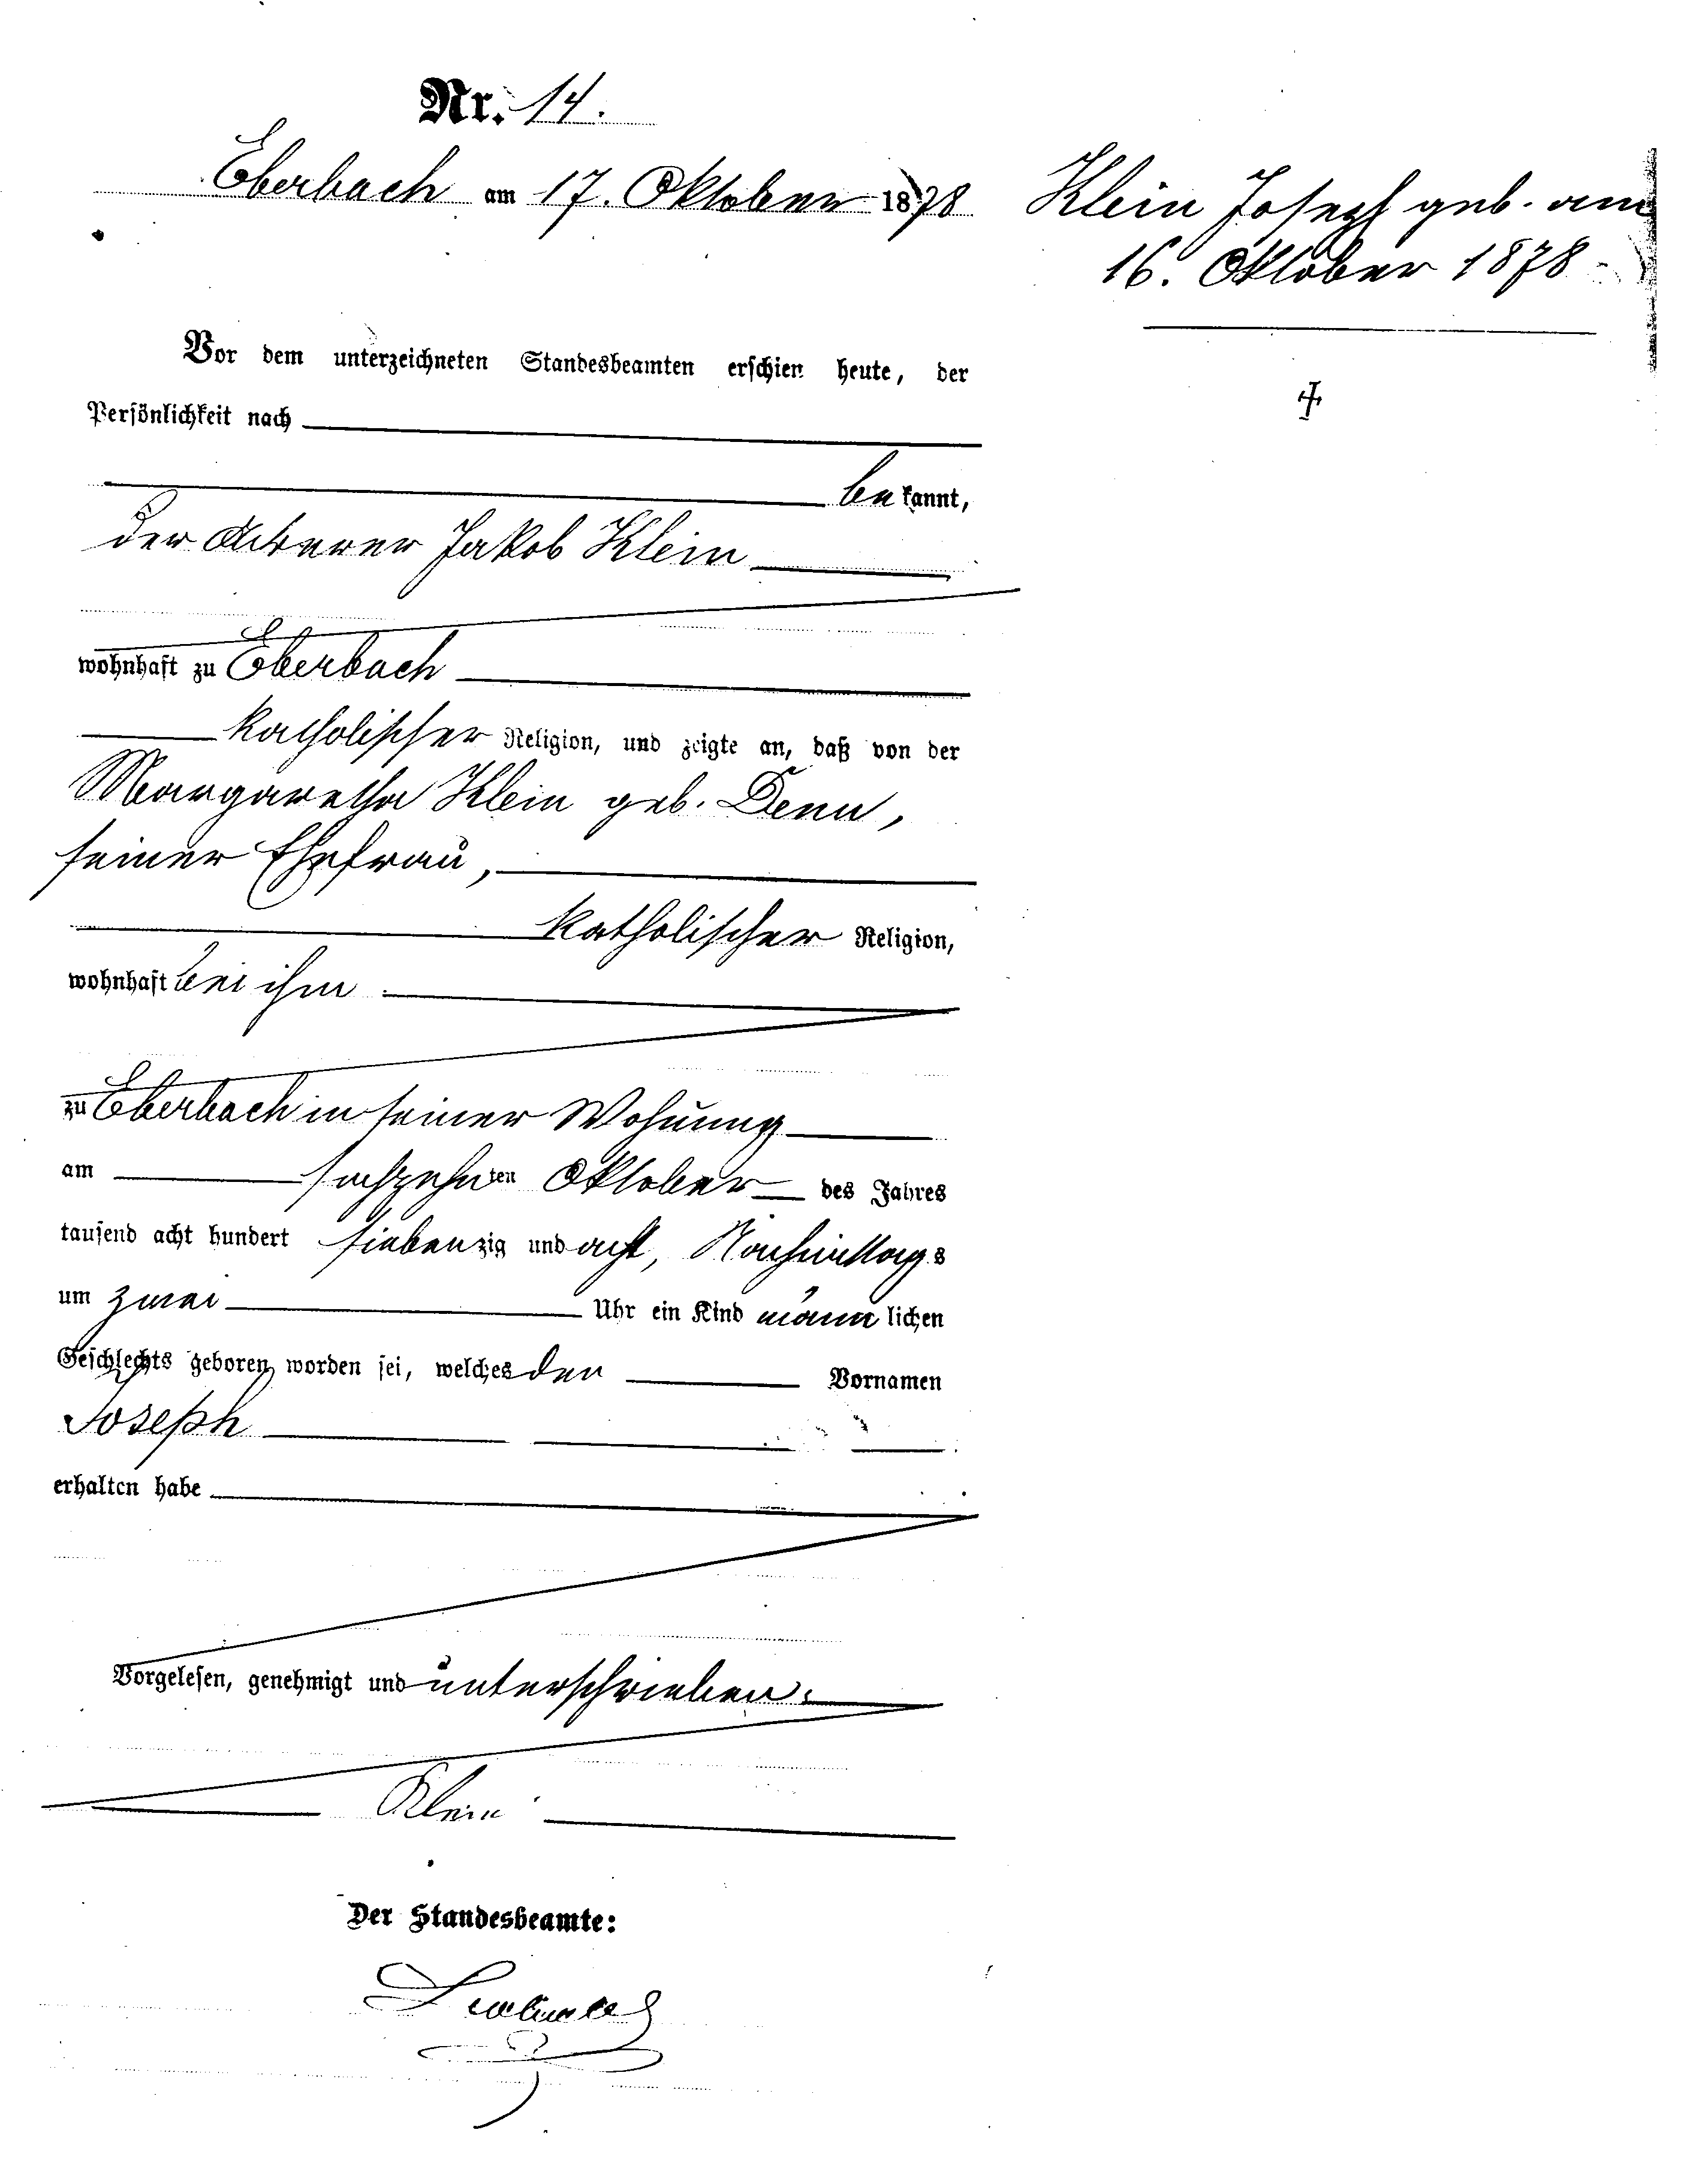 Nr. 14.
Eberbach am 17. Oktober 1878
Klein Joseph geb. am
16. Oktober 1878
Vor dem unterzeichneten Standesbeamten erschien heute, der
Persönlichkeit nach
bekannt,
der Ackerer Jakob Klein
wohnhaft zu Eberbach
katholischer Religion, und zeigte an, daß von der
Margaretha Klein geb. Denn,
seiner Ehefrau,
katholischer Religion,
wohnhaft bei ihm
zu Eberbach in seiner Wohnung
am sechzehnten Oktober des Jahres
tausend acht hundert siebenzig und acht, Nachmittags
um zwei Uhr ein Kind männlichen
Geschlechts geboren worden sei, welches den Vornamen
Joseph
erhalten habe
Vorgelesen, genehmigt und unterschrieben.
Klein
Der Standesbeamte: